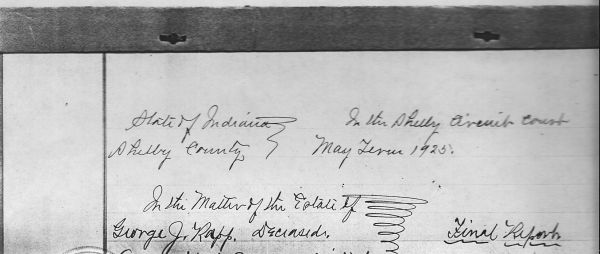 State of Indiana In the Shelby Circuit Court
Shelby County, May Term 1925.
In the Matter of the Estate of
George J. Kapp. Deceased. Final Report